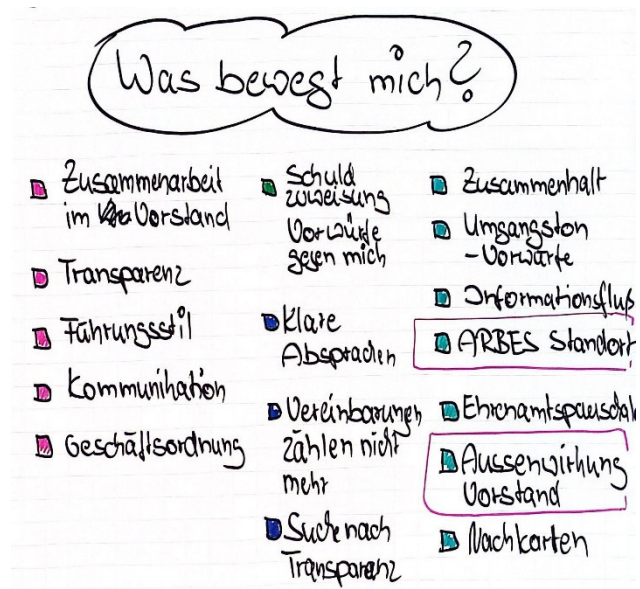 Was bewegt mich?
Zusammenarbeit
im Vorstand
Transparenz
Führungsstil
Kommunikation
Geschäftsordnung
Schuld
zuweisung
Vorwürfe
gegen mich
Klare
Absprachen
Vereinbarungen
zählen nicht
mehr
Suche nach
Transparenz
Zusammenhalt
Umgangston
-Vorwürfe
Informationsfluß
ARBES Standort
Ehrenamtspauschal
Aussenwirkung
Vorstand
Nachkarten